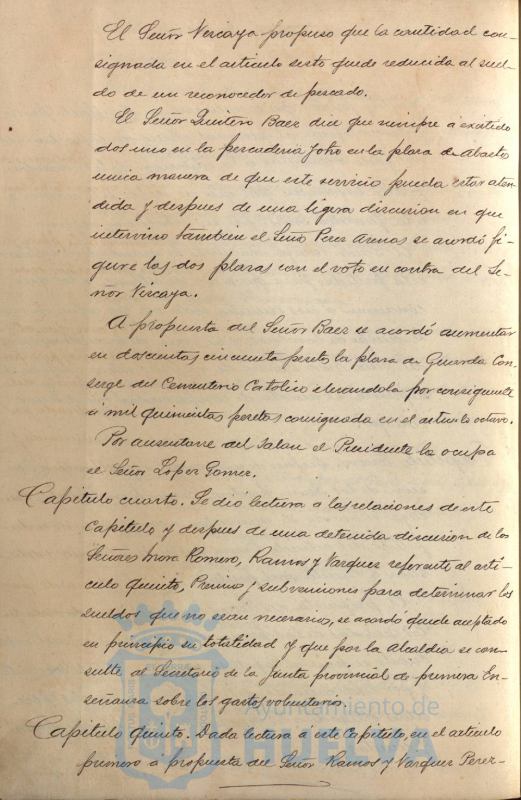 El Señor Viscaya propuso que la cantidad con-
signada en el articulo sesto quede reducida al suel-
do de un reconocedor de pescado.
El Señor Quintero Baez dice que siempre á existido
dos uno en la pescaderia y otro en la plaza de Abasto
unica manera de que este servicio pueda estar aten-
dida y despues de una ligera discusion en que
intervino tambien el Señor Perez Arenas se acordó fi-
gure las dos plazas con el voto en contra del Se-
ñor Viscaya.
A propuesta del Señor Baez se acordó aumentar
en doscientas cincuenta pesetas la plaza de Guarda Con-
serge del Cementerio Catolico elevandola por consiguiente
á mil quinientas pesetas consignada en el articulo octavo.
Por ausentarse del Salon el Presidente la ocupa
el Señor Lopez Gomez.
Capitulo cuarto. Se dió lectura á las relaciones de este
Capitulo y despues de una detenida discusion de los
Señores Mora Romero, Ramos y Vazquez referente al arti-
culo quinto, Premios y subvenciones para determinar los
sueldos que no sean necesarios, se acordó quede aceptado
en principio su totalidad y que por la Alcaldia se con-
sulte al Secretario de la Junta provincial de primera En-
señanza sobre los gastos voluntarios.
Capitulo quinto. Dada lectura á este Capitulo, en el articulo
primero a propuesta del Señor Ramos y Vazquez Perez-
Ayuntamiento de
HUELVA